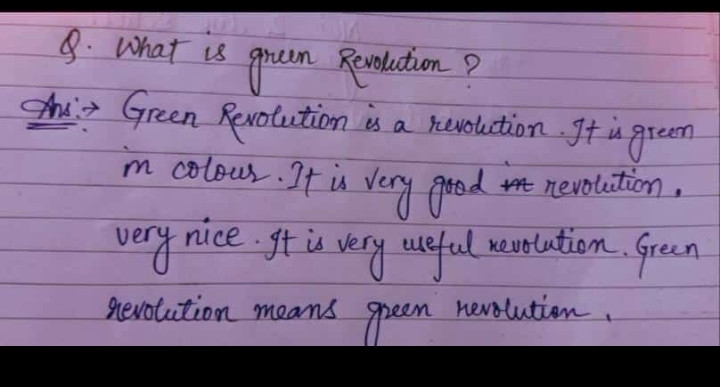 Q. What is green Revolution ?
Ans:→ Green Revolution is a revolution. It is green
in colour. It is very good in revolution.
very nice. It is very useful revolution. Green
revolution means green revolution.